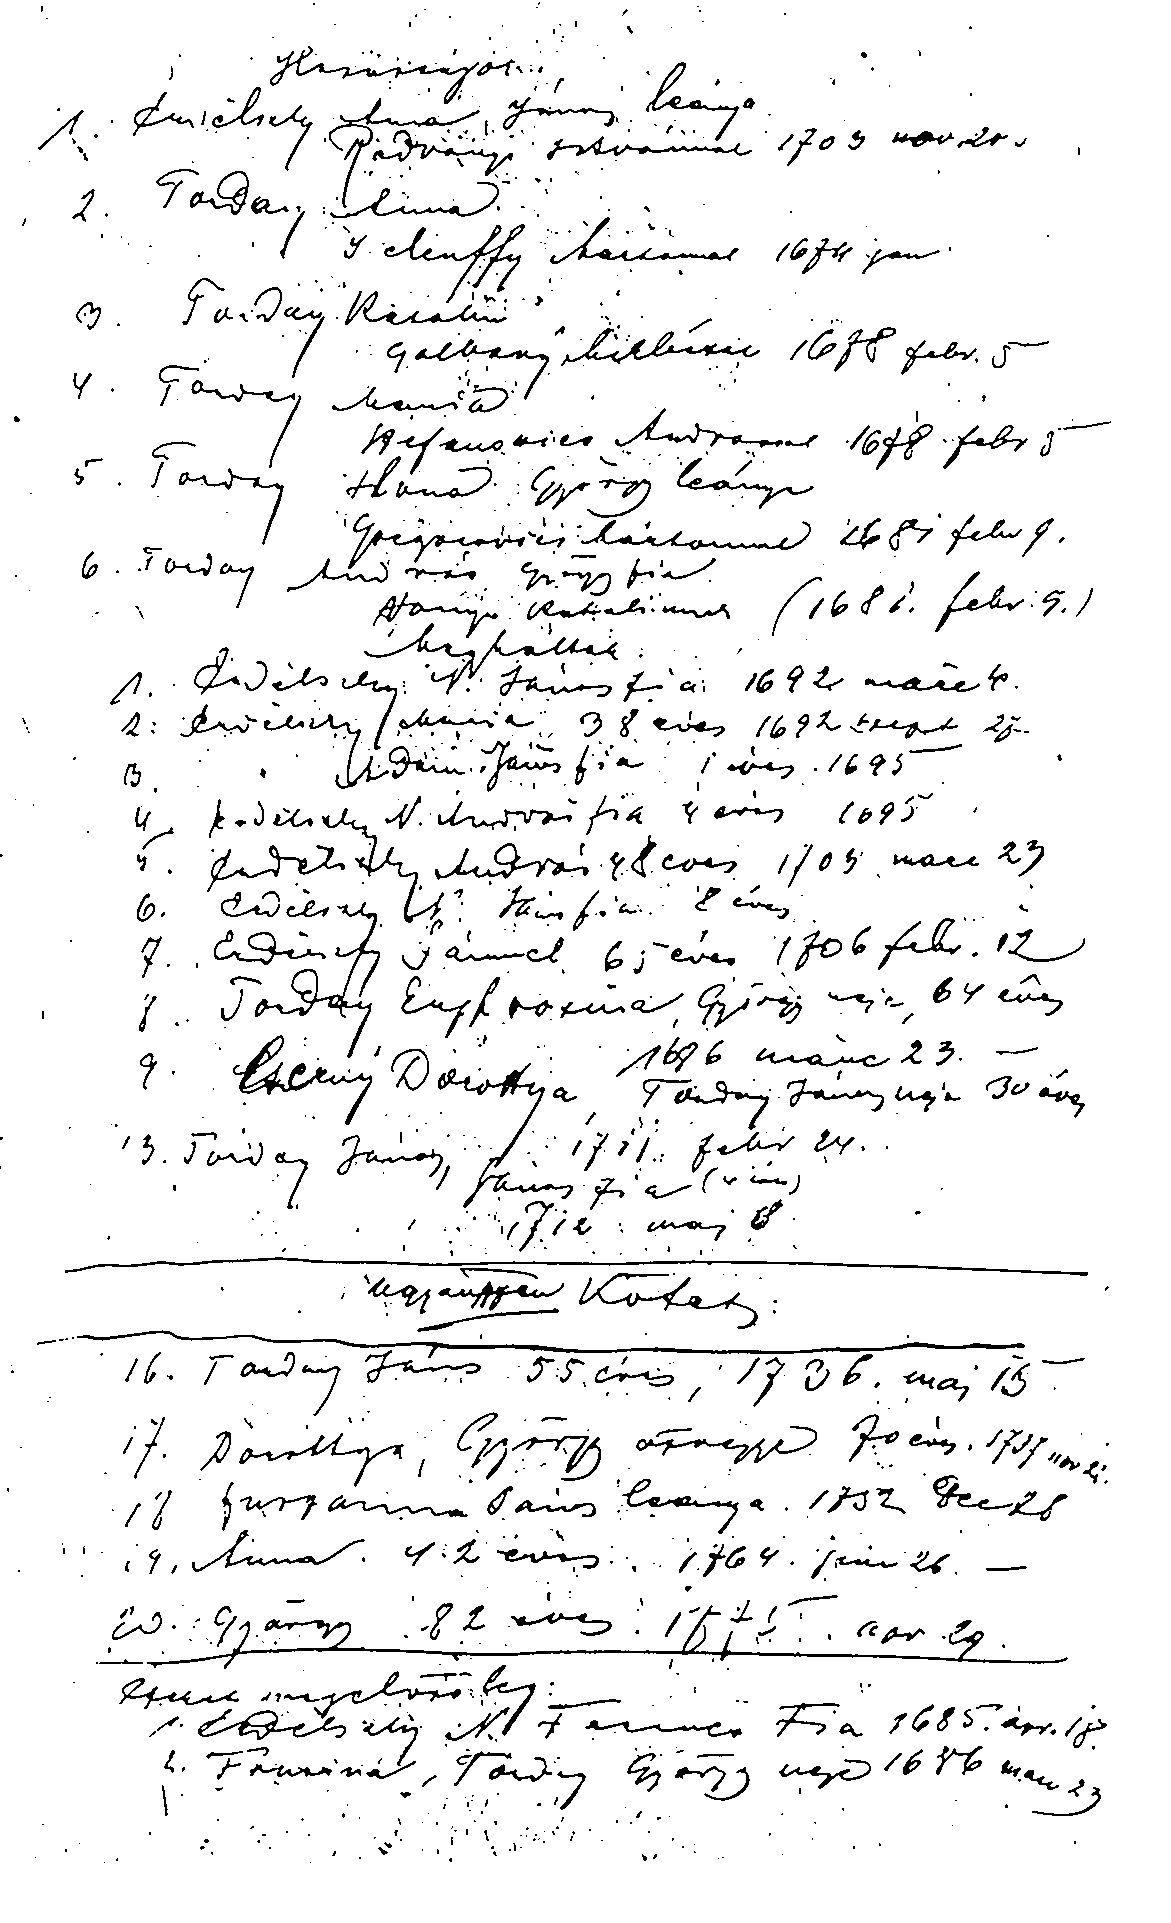 Házasságok
1. Erdélszky Anna, János leánya
Radványi Istvánnal 1703 nov. 20.
2. Torday Anna
Mártonnal 1674 jan
3. Torday Katalin
1678 febr. 5
4. Torday Mária
Stefanovics Andrással 1678 febr 5
5. Torday Ilona György leánya
Gregorovics Mártonnal 1681 febr 9.
6. Torday András György fia
Katalinnal (1681. febr. 9.)
Meghaltak:
1. Erdélszky N. János fia 1692 márc 4.
2. Erdélszky Mária 38 éves 1692 szept
3. Ádám János fia 1 éves 1695
4. Erdélszky N. András fia 4 éves 1695
5. Erdélszky András 48 éves 1703 marc 23
6. Erdélszky N. János fia 8 éves
7. Erdélszky Sámuel 65 éves 1706 febr. 12
8. Torday Euphrosina, György neje, 64 éves
1686 márc 23. —
9. Cserny Dorottya, Torday János neje 30 éves
1711. febr 24.
13. Torday János, János fia (4 éves)
1712 maj 8
ugyanezen Kötet:
16. Torday János 55 éves, 1736. maj 15
17. Dorottya, György özvegye 70 éves. 1737 nov
18 Zsuzsanna János leánya. 1752 Dec 28
19. Anna. 42 éves. 1764. jun 26. —
20. György 82 éves. 1775. nov 29.
Ennek megelőzőleg:
1. Erdélszky N. Ferencz Fia 1685. nov. 18.
2. Torday György neje 1686 marc 23